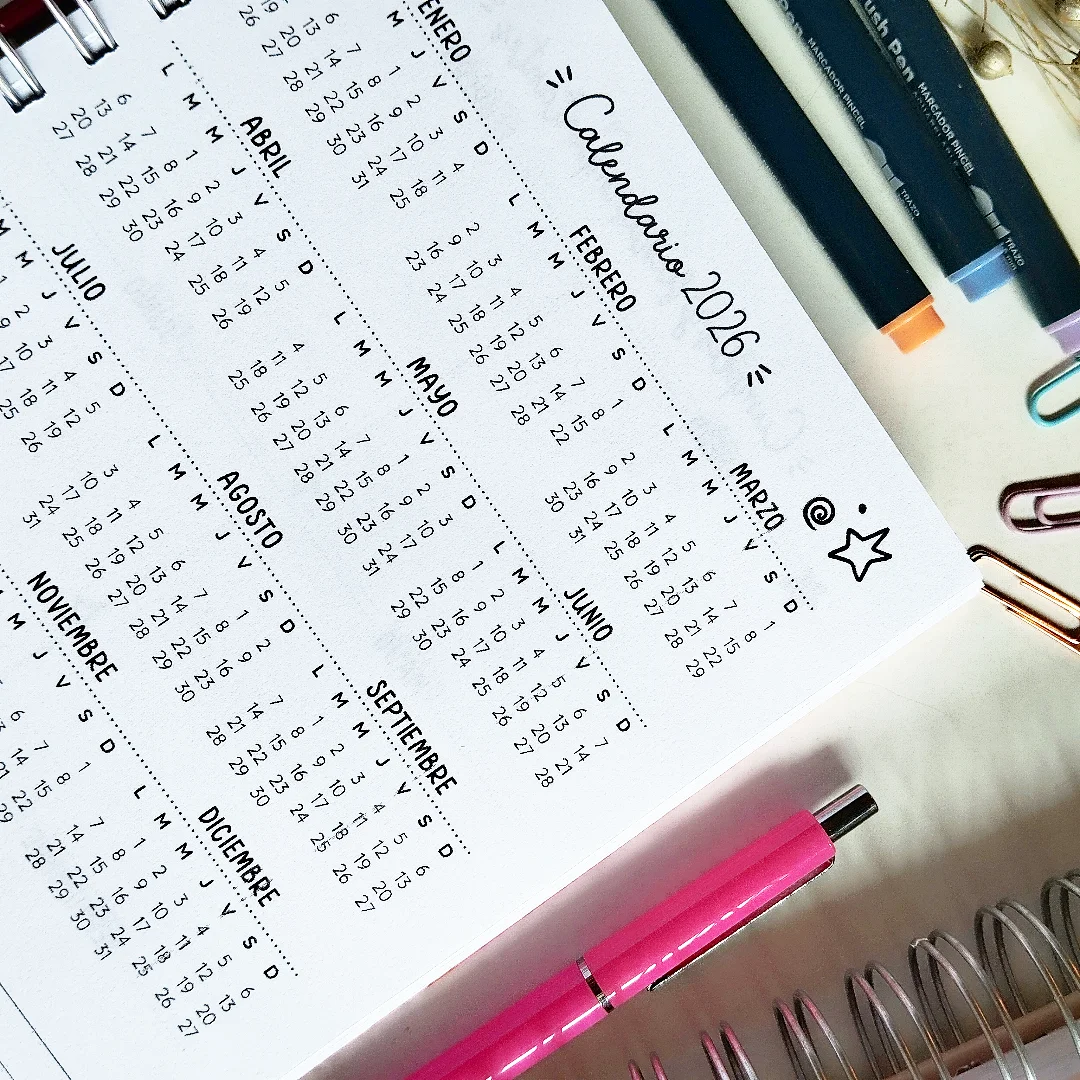 Calendario 2026
ENERO
M J V S D
1 2 3 4
6 7 8 9 10 11
13 14 15 16 17 18
19 20 21 22 23 24 25
26 27 28 29 30 31
FEBRERO
L M M J V S D
1
2 3 4 5 6 7 8
9 10 11 12 13 14 15
16 17 18 19 20 21 22
23 24 25 26 27 28
MARZO
L M M J V S D
1
2 3 4 5 6 7 8
9 10 11 12 13 14 15
16 17 18 19 20 21 22
23 24 25 26 27 28 29
30 31
ABRIL
L M M J V S D
1 2 3 4 5
6 7 8 9 10 11 12
13 14 15 16 17 18 19
20 21 22 23 24 25 26
27 28 29 30
MAYO
L M M J V S D
1 2 3
4 5 6 7 8 9 10
11 12 13 14 15 16 17
18 19 20 21 22 23 24
25 26 27 28 29 30 31
JUNIO
L M M J V S D
1 2 3 4 5 6 7
8 9 10 11 12 13 14
15 16 17 18 19 20 21
22 23 24 25 26 27 28
29 30
JULIO
M M J V S D
1 2 3 4 5
9 10 11 12
17 18 19
25 26
AGOSTO
L M M J V S D
1 2
3 4 5 6 7 8 9
10 11 12 13 14 15 16
17 18 19 20 21 22 23
24 25 26 27 28 29 30
31
SEPTIEMBRE
L M M J V S D
1 2 3 4 5 6
7 8 9 10 11 12 13
14 15 16 17 18 19 20
21 22 23 24 25 26 27
28 29 30
NOVIEMBRE
M J V S D
1
6 7 8
14 15
21 22
29
DICIEMBRE
L M M J V S D
1 2 3 4 5 6
7 8 9 10 11 12 13
14 15 16 17 18 19 20
21 22 23 24 25 26 27
28 29 30 31
Pen MARCADOR PINCEL
TRAZO
Brush Pen MARCADOR PINCEL
TRAZO